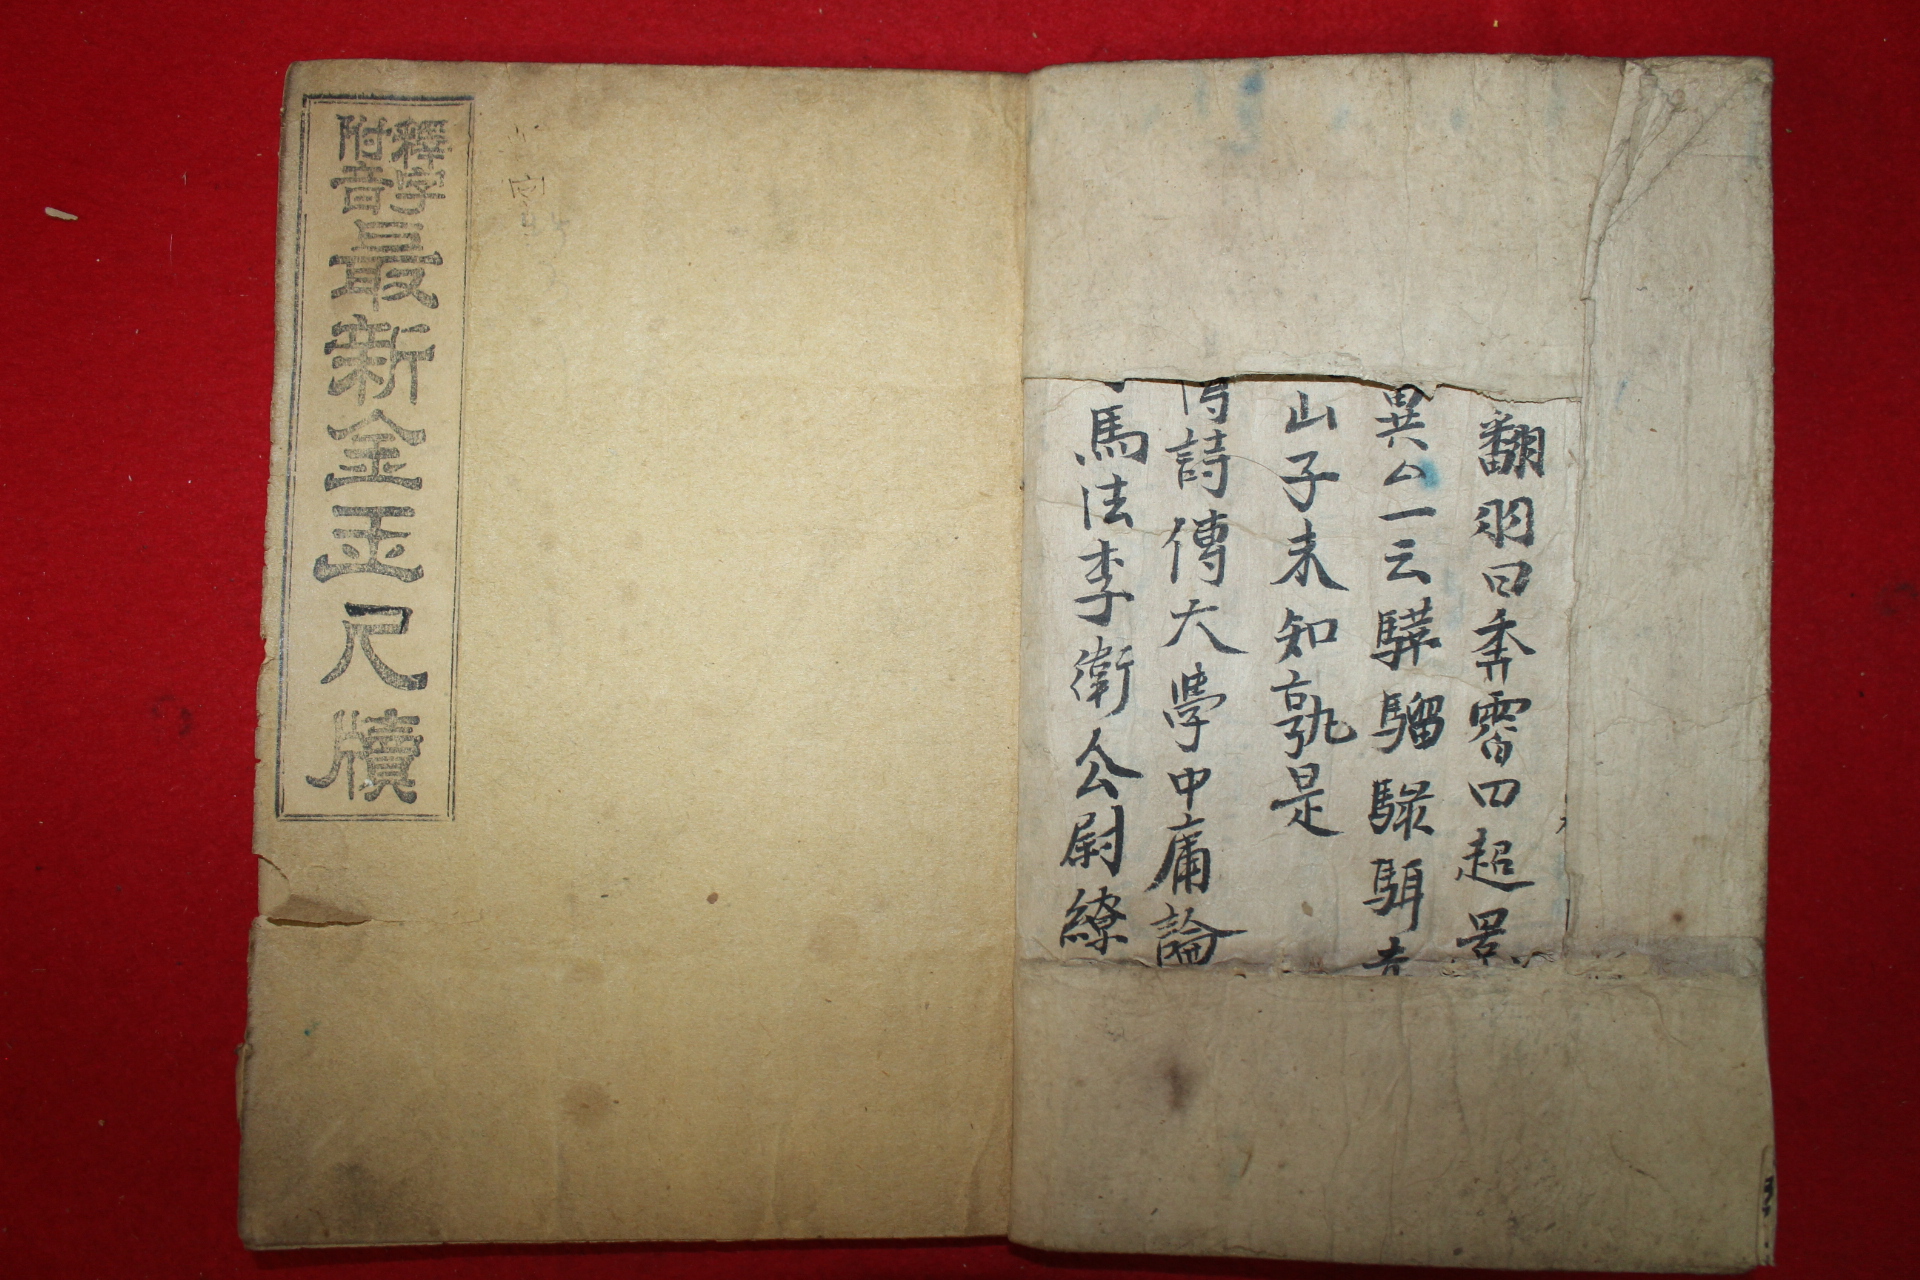 翻羽曰奔霄曰超景
異仝一云驊騮騄駬
山子未知孰是
詩傳大學中庸論
馬法李衛公尉繚
釋字
附音
最新金玉尺牘